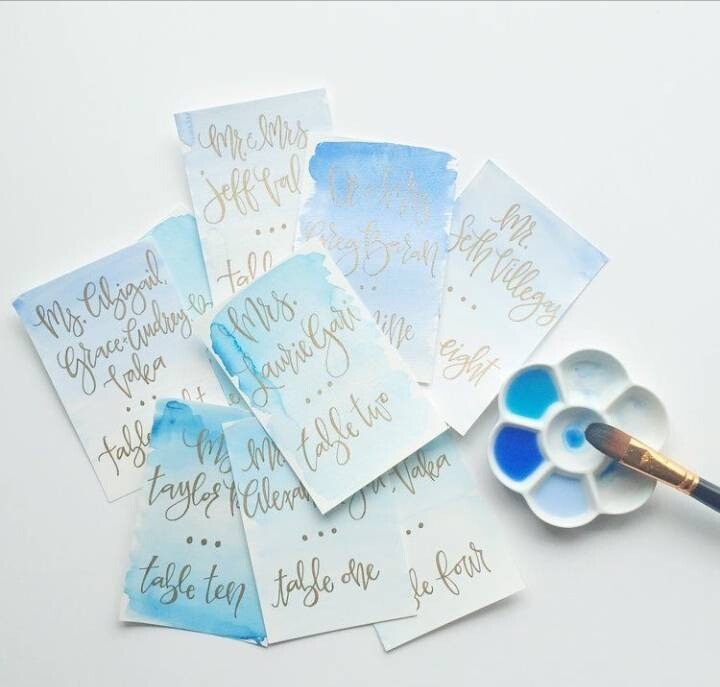 Mr. & Mrs
Jeff Val
table
Greg Baran
nine
Mr.
Seth Villegas
eight
Ms. Abigail,
Grace + Audrey
Vaka
table
Mrs.
Laurie Gari
table two
Ms
Taylor
table ten
Mr
Alexan
table one
Vaka
le four